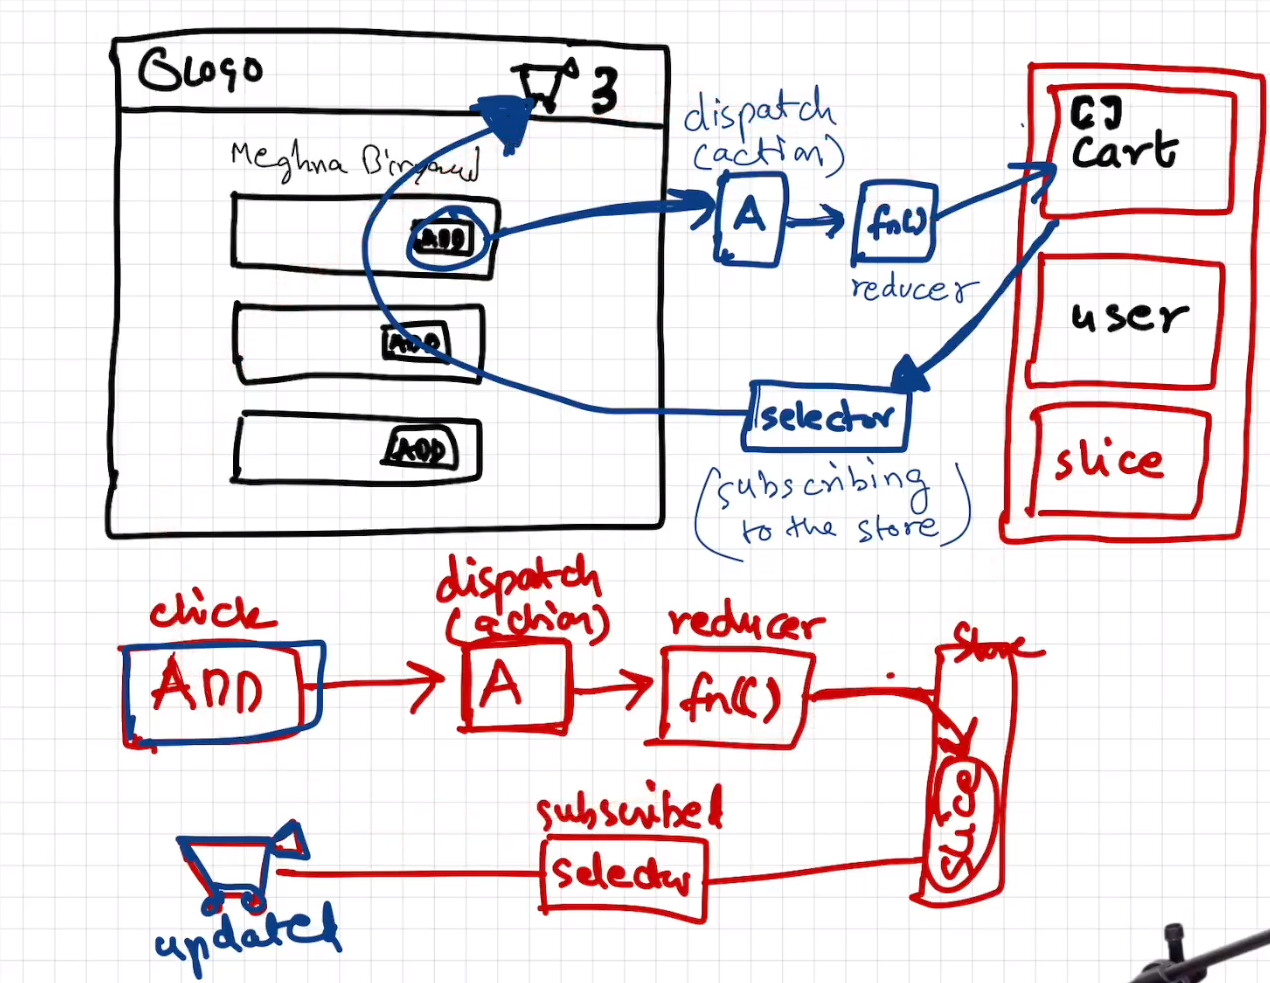 Logo
3
Meghna Biryani
ADD
ADD
ADD
dispatch
(action)
A
fn()
reducer
[]
Cart
user
slice
selector
(subscribing
to the store)
click
ADD
dispatch
(action)
A
reducer
fn()
Store
slice
subscribed
selector
updated